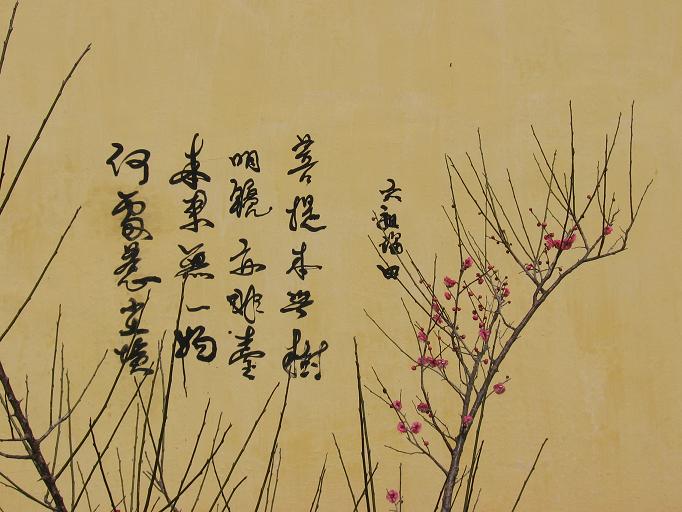 六祖偈曰
菩提本無樹
明鏡亦非臺
本來無一物
何處惹塵埃